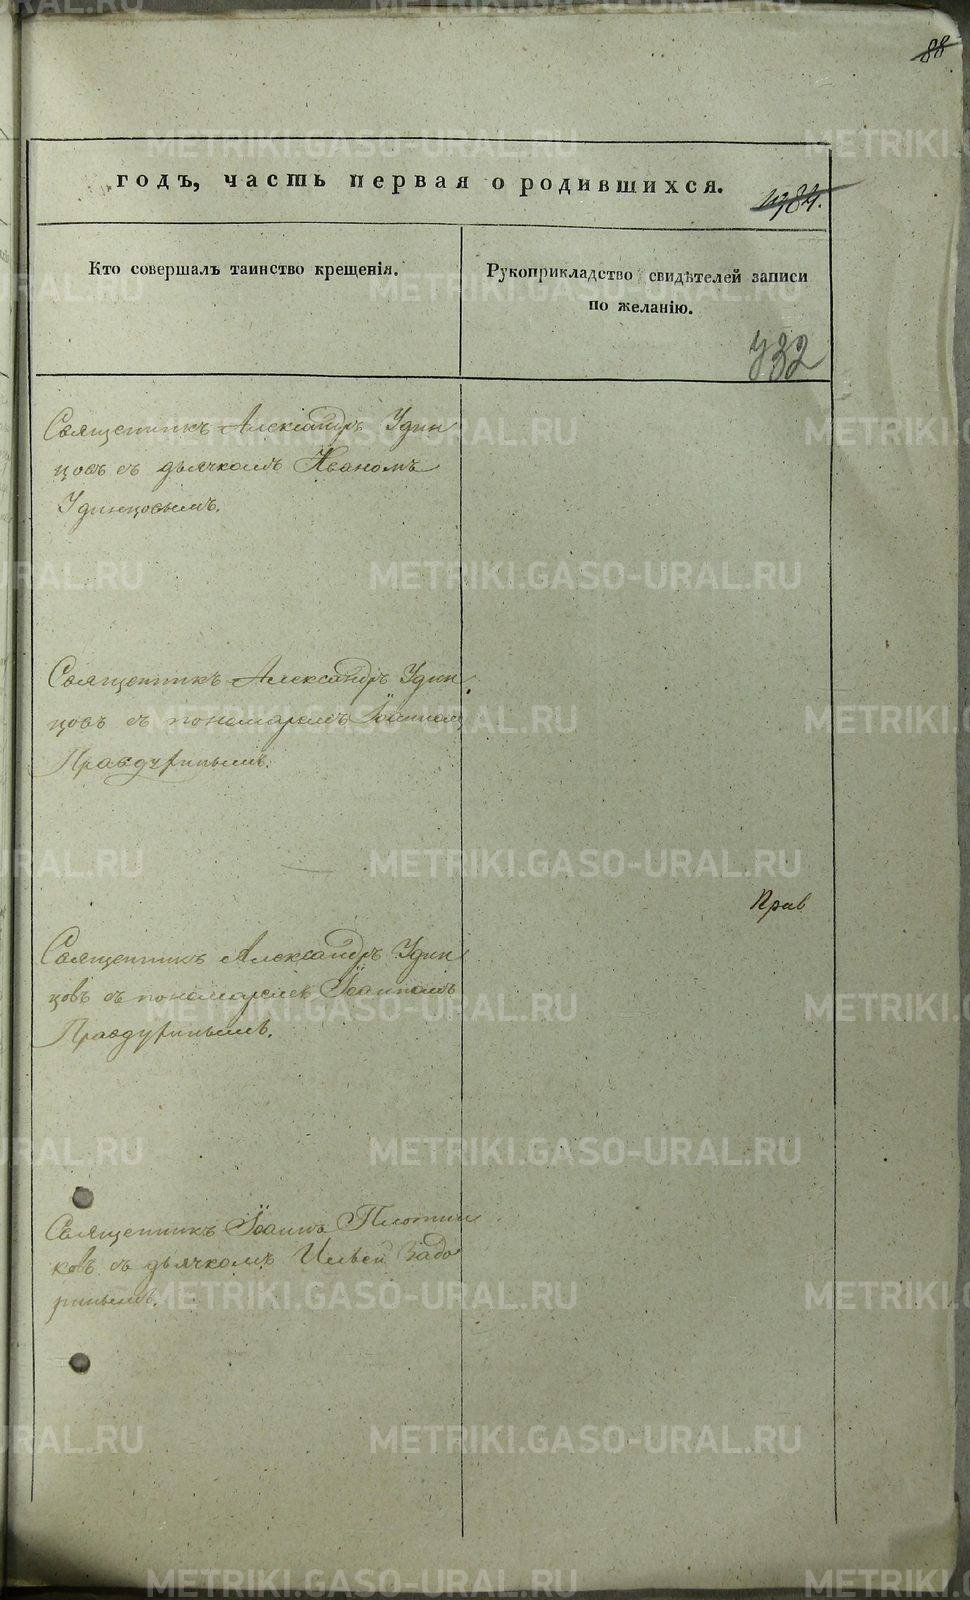 88
годъ, часть первая о родившихся.
Кто совершалъ таинство крещенія.
Рукоприкладство свидѣтелей записи
по желанію.
732
Священникъ Александръ Удин
цовъ съ дьячкомъ Иваномъ
Удинцовымъ.
Священникъ Александръ Удин
цовъ съ пономаремъ Іоанномъ
Правдуринымъ.
Прав
Священникъ Александръ Удин
цовъ съ пономаремъ Іоанномъ
Правдуринымъ.
Священникъ Іоаннъ Плотни
ковъ съ дьячкомъ Ильей Задо
ринымъ.
METRIKI.GASO-URAL.RU